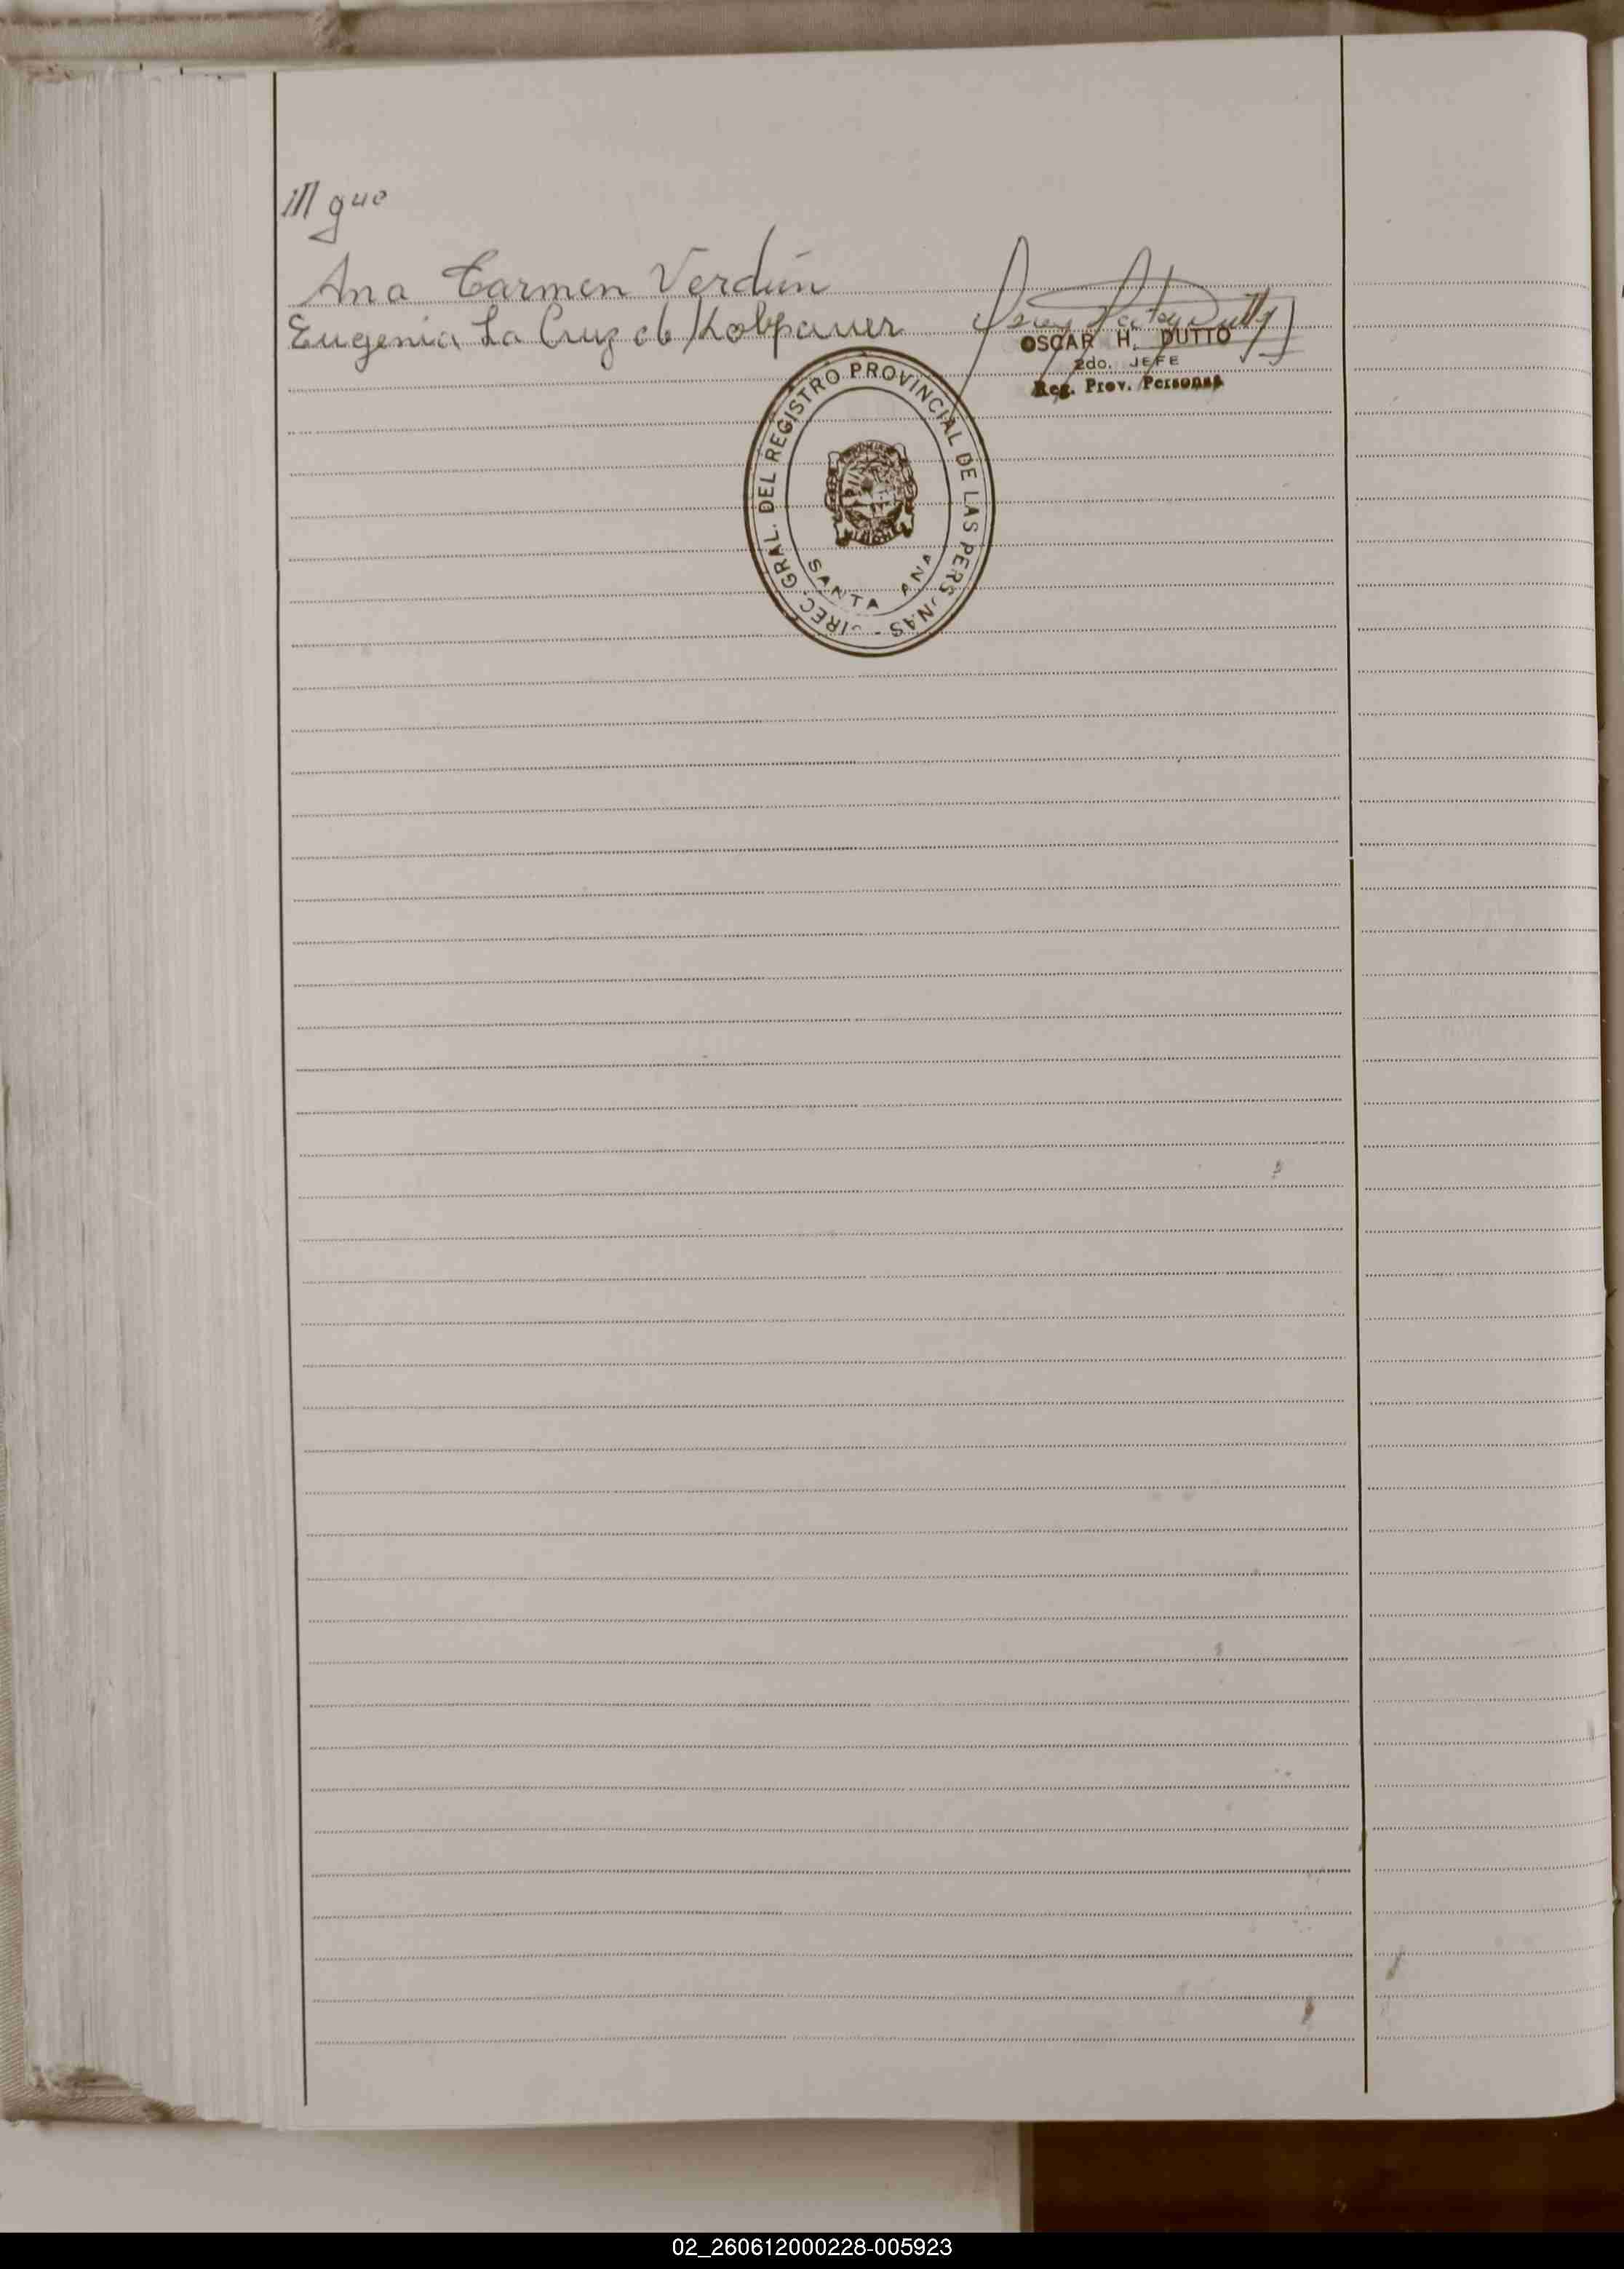 Ana Carmen Verdún
Eugenia La Cruz de
OSCAR H. DUTTO
2do. JEFE
Reg. Prov. Personas
GRAL. DEL REGISTRO PROVINCIAL DE LAS PERS NAS - IREC.
SANTA ANA
02_260612000228-005923